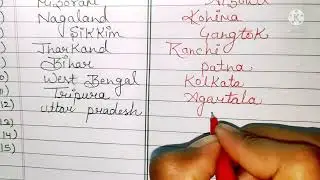 Mizoram Aizawl
Nagaland Kohima
Sikkim Gangtok
Jharkand Ranchi
Bihar patna
West Bengal Kolkata
Tripura Agartala
12) uttar pradesh
13)
14)
15)
KINEMASTER